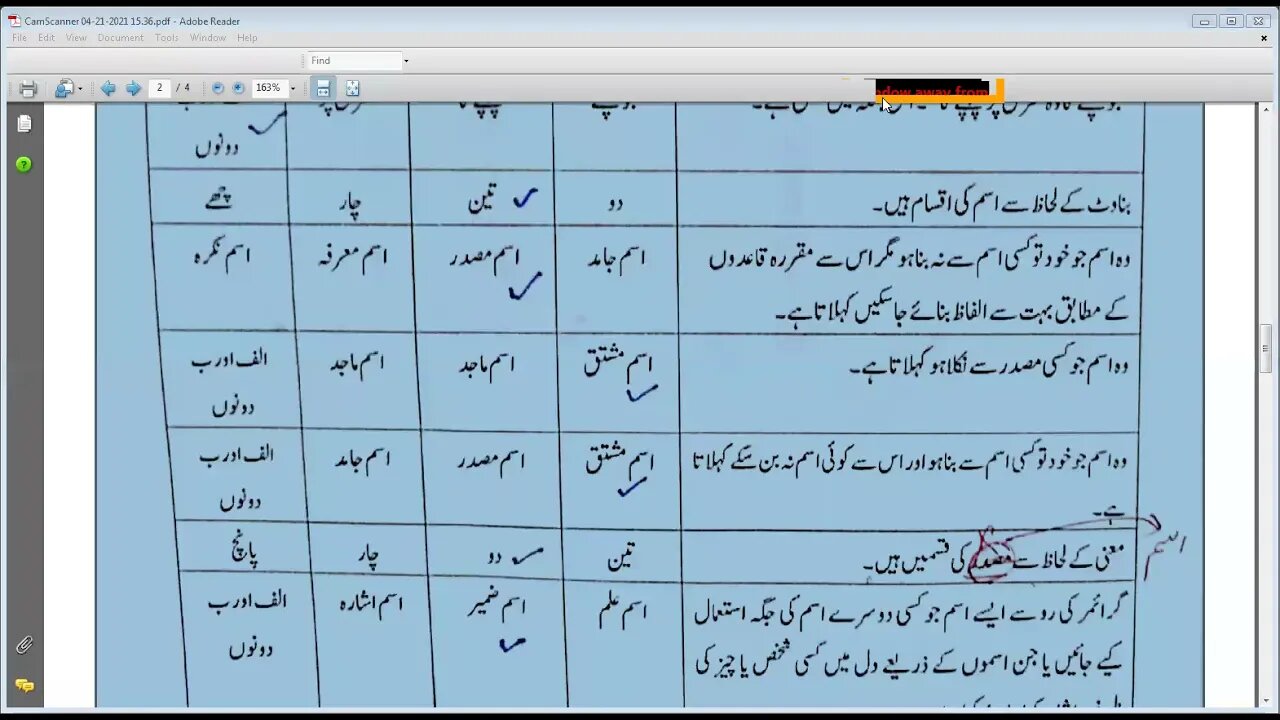 CamScanner 04-21-2021 15.36.pdf - Adobe Reader
File Edit View Document Tools Window Help
Find
2 / 163%
ndow away from
دونوں
بناوٹ کے لحاظ سے اسم کی اقسام ہیں۔ دو تین چار چھے
وہ اسم جو خود تو کسی اسم سے نہ بنا ہو مگر اس سے مقررہ قاعدوں اسم جامد اسم مصدر اسم معرفہ اسم نکرہ
کے مطابق بہت سے الفاظ بنائے جا سکیں کہلاتا ہے۔
وہ اسم جو کسی مصدر سے نکلا ہو کہلاتا ہے۔ اسم مشتق اسم ماجد اسم ماجد الف اور ب
دونوں
وہ اسم جو خود تو کسی اسم سے بنا ہو اور اس سے کوئی اسم نہ بن سکے کہلاتا اسم مشتق اسم مصدر اسم جامد الف اور ب
ہے۔ دونوں
اسم
معنی کے لحاظ سے مصدر کی قسمیں ہیں۔ تین دو چار پانچ
گرائمر کی رو سے ایسے اسم جو کسی دوسرے اسم کی جگہ استعمال اسم علم اسم ضمیر اسم اشارہ الف اور ب
کیے جائیں یا جن اسموں کے ذریعے دل میں کسی شخص یا چیز کی دونوں